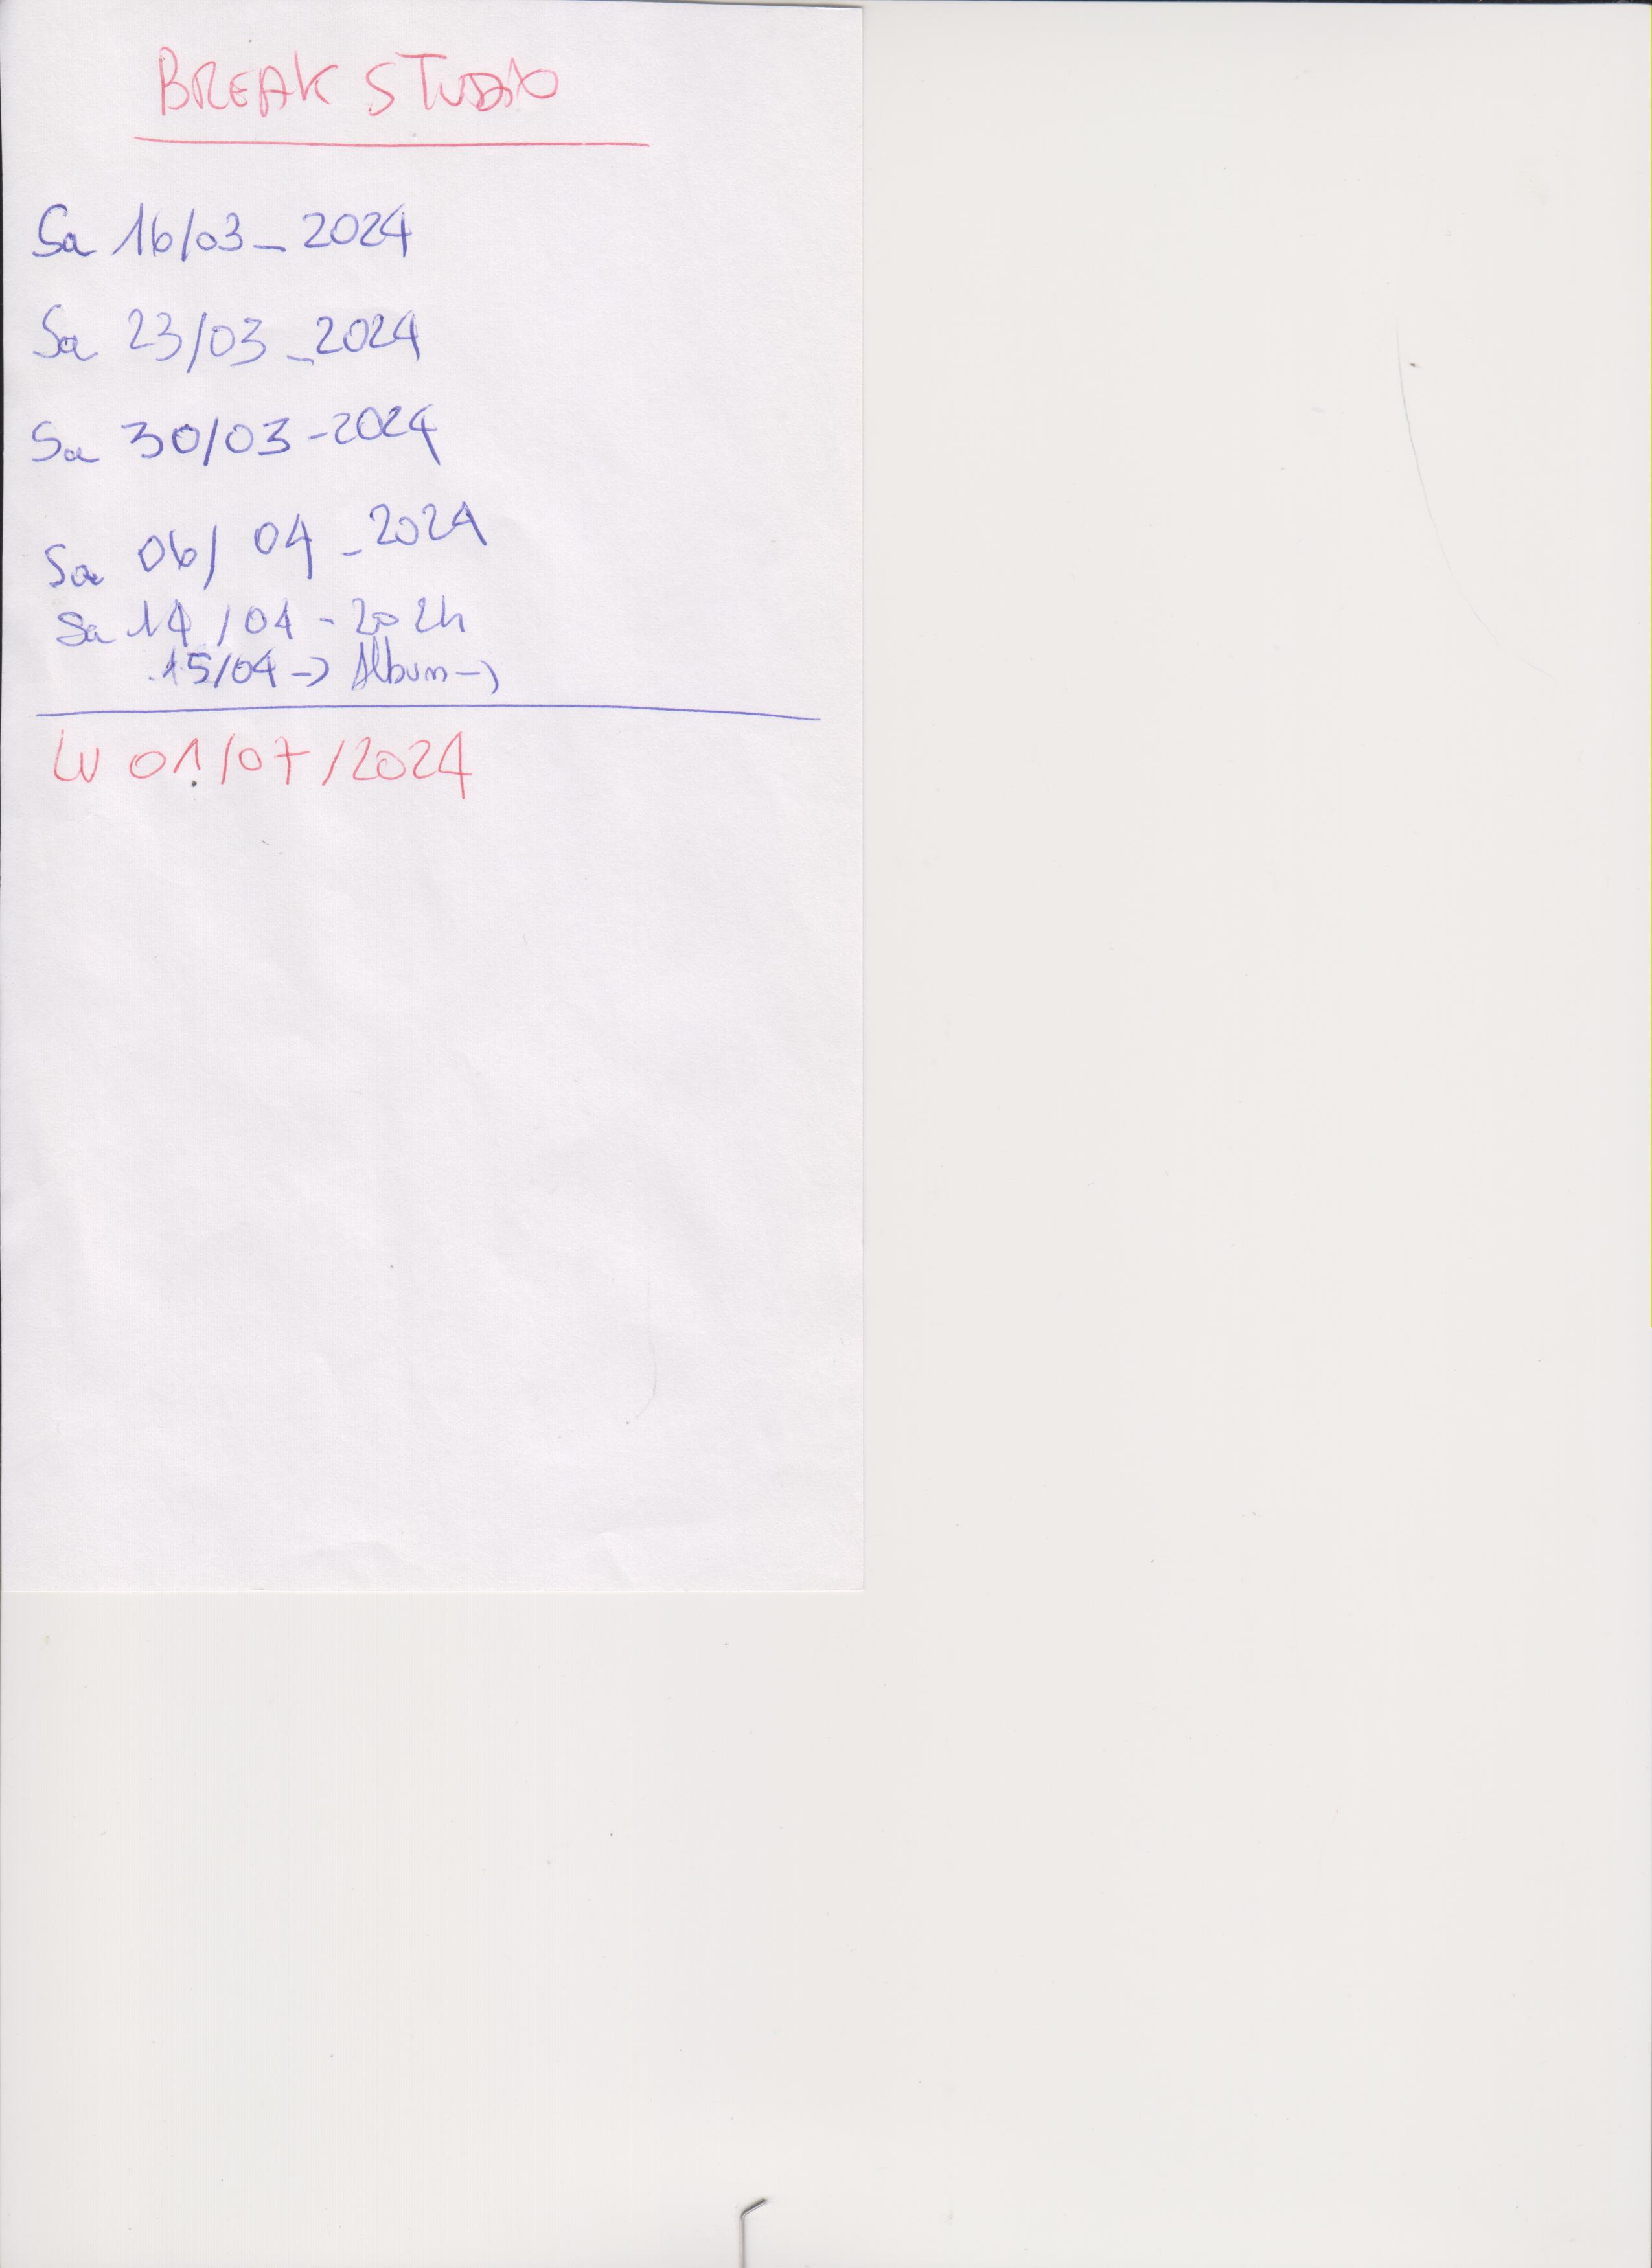 BREAK STUDIO
Sa 16/03_2024
Sa 23/03_2024
Sa 30/03-2024
Sa 06/04_2024
Sa 14/04-2024
15/04→ Album→
Lu 01/07/2024